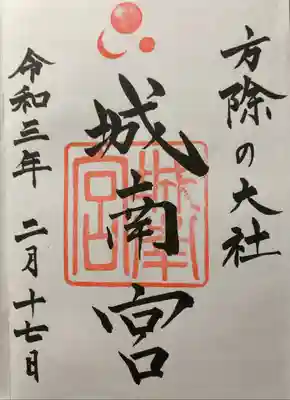 方除の大社
城南宮
令和三年 二月十七日
城南宮